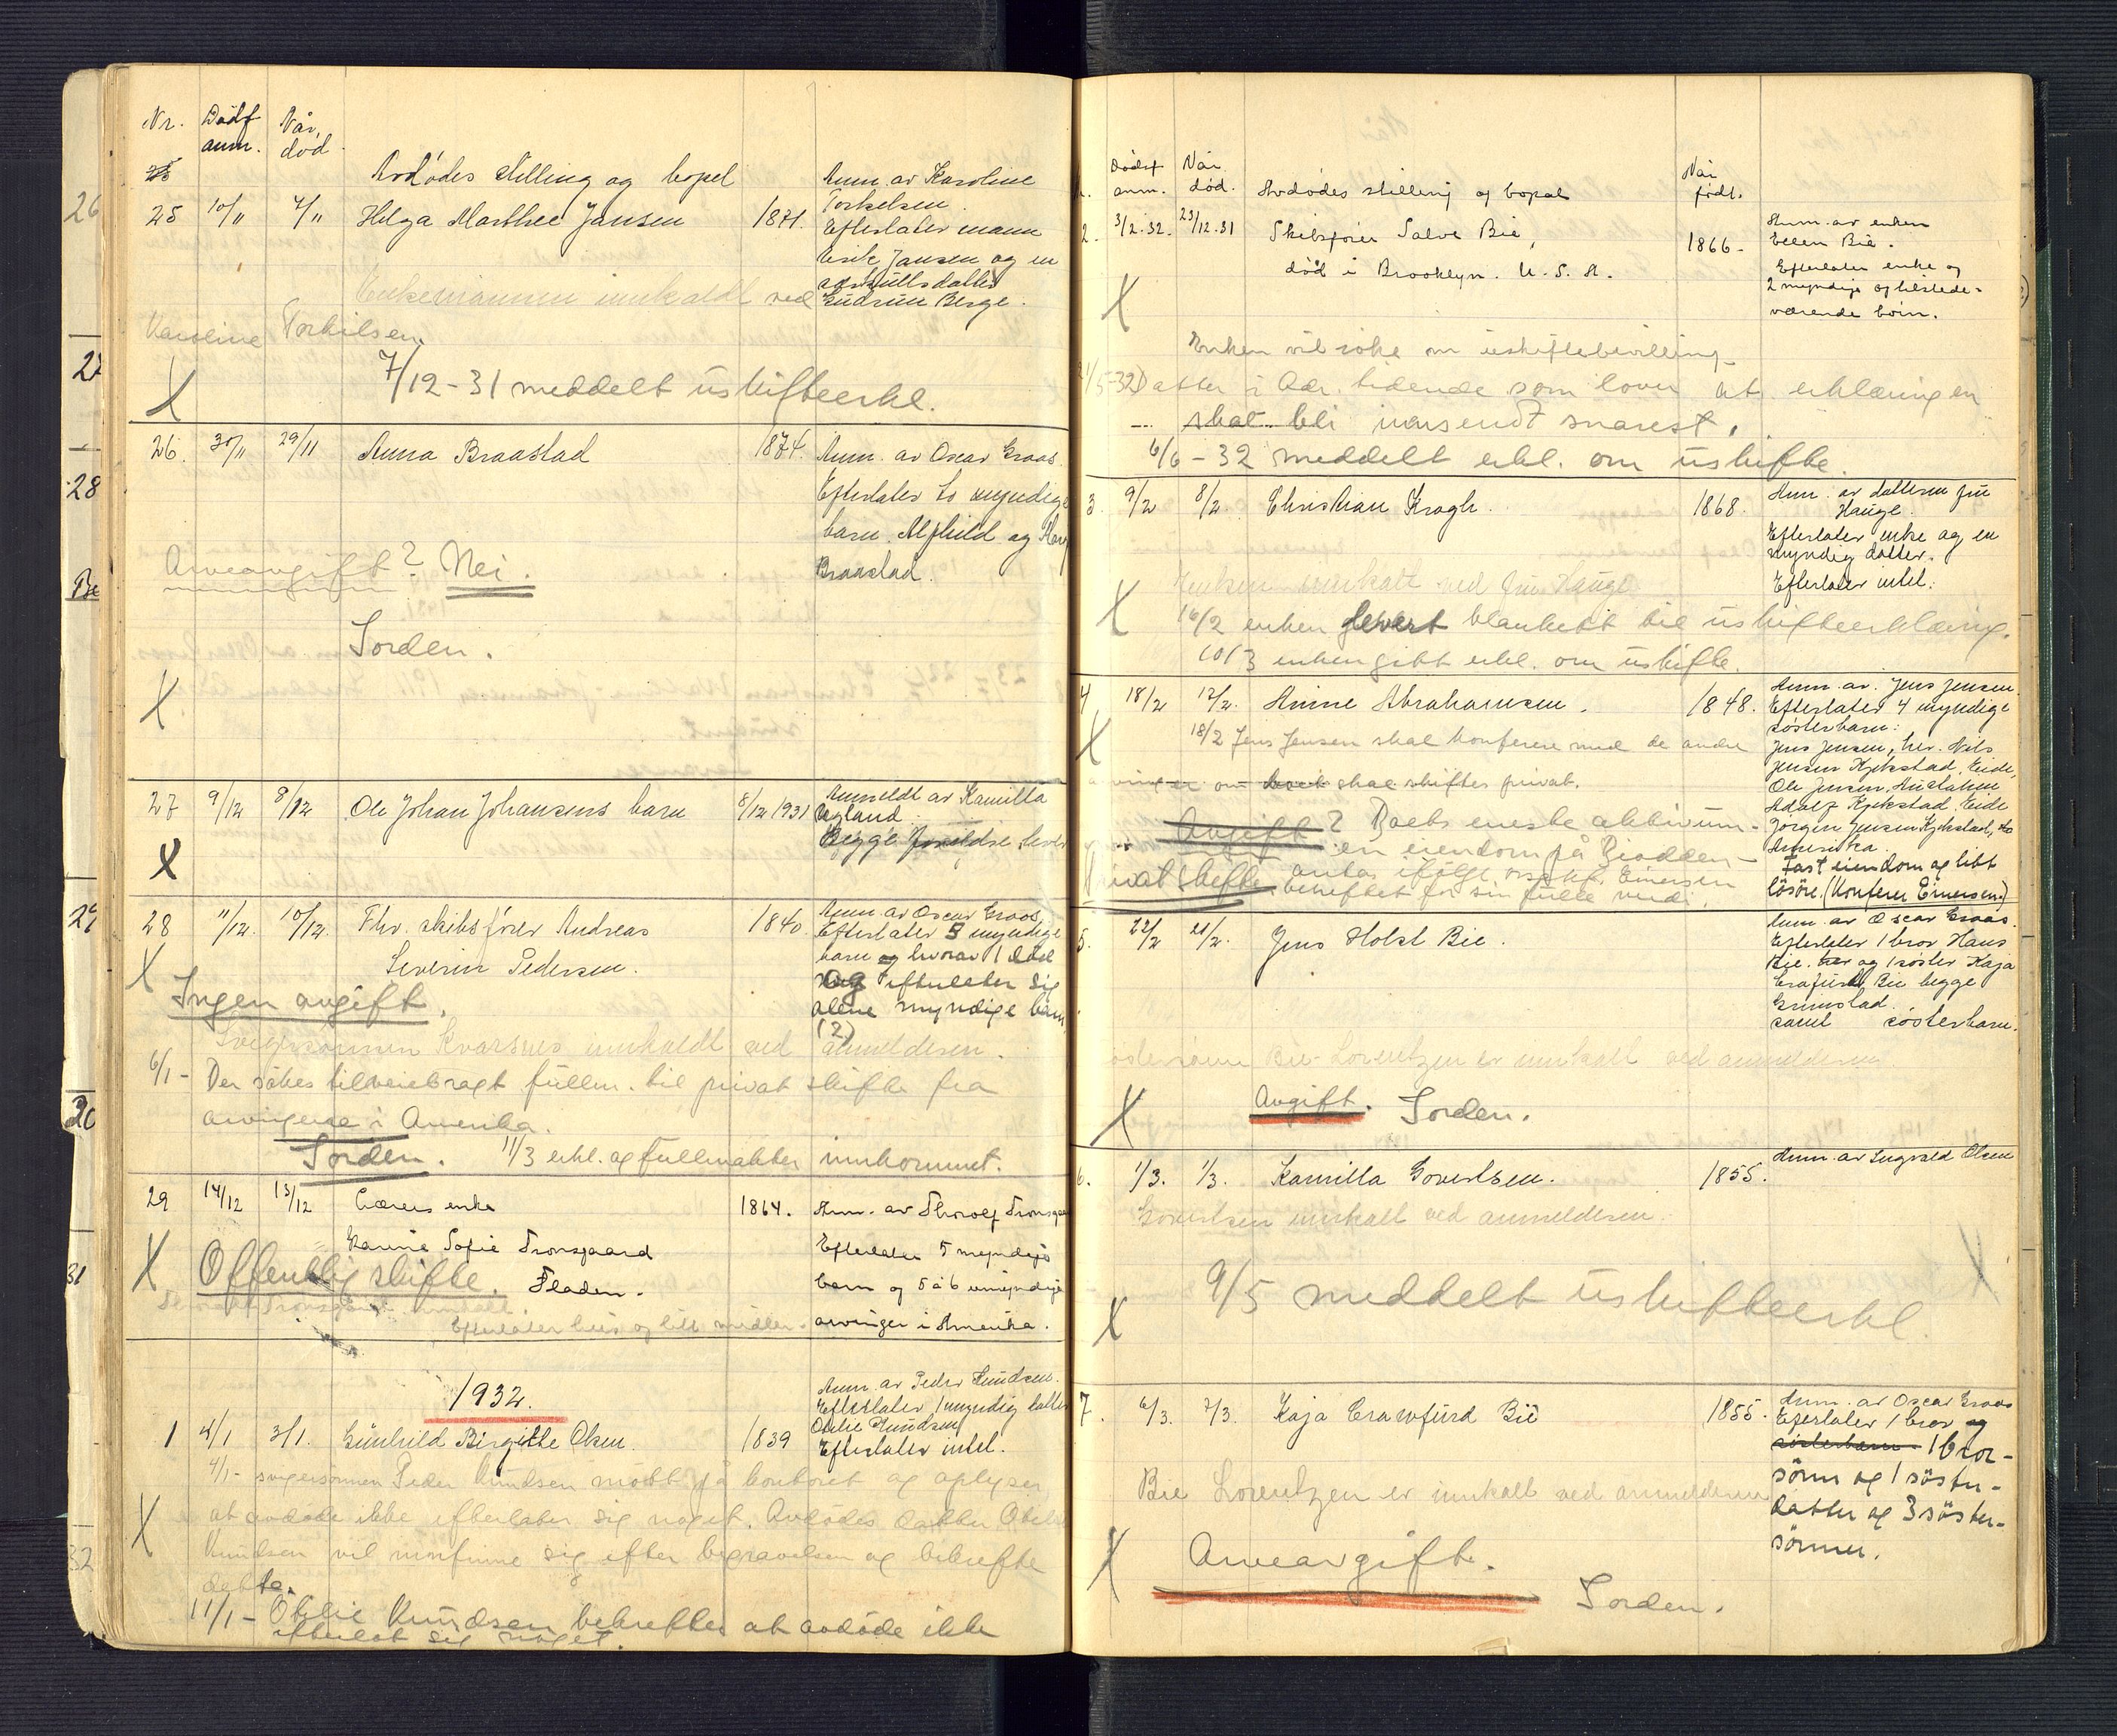 Nr. Dødsf. anm. Når død. Avdødes stilling og bopel
25 10/11 7/11 Helga Marthee Jansen 1871.
Anm. av Karoline
Torkelsen.
Efterlater mann
Eirik Jansen og en
adoptivsdatter
Gudrun Berge.
Enkemannen innkaldt ved
Karoline Torkilsen.
7/12-31 meddelt uskifteerkl.
X
26. 30/11 29/11 Anna Braastad 1874.
Anm. av Oscar Graas.
Efterlater to myndige
barn. Alfhild og
Braastad.
Arveavgift? Nei.
I orden.
X
27 9/12 8/12 Ole Johan Johansens barn 8/12 1931
Anmeldt av Kamilla
Ugland.
Begge foreldre lever
X
28 11/12. 10/12. Fhv. skibsfører Andreas
Severin Pedersen. 1840.
Anm. av Oscar Graas.
Efterlater 5 myndige
barn og hvorav 1 død
og efterlater sig
alene myndige barn
(2)
X
Ingen avgift.
Svigersønnen Kvarsnes innkaldt ved anmelderen.
6/1- Der søkes tilveiebragt fullm. til privat skifte fra
arvingene i Amerika.
I orden. 11/3 erkl. og fullmakter innkommet.
29 14/12 13/12 Lærers enke
Karine Sofie Tronsgaard
Fladen. 1864.
Anm. av Thorolf Tronsgaard
Efterlater 5 myndige
barn og 5 à 6 umyndige
arvinger i Amerika.
X
Offentlig skifte.
Thorolf Tronsgaard innkalt.
Efterlater hus og litt midler.
1932.
1 4/1 3/1. Gunhild Birgitte Olsen. 1839
Anm. av Peder Knudsen.
Efterlater 1 myndig datter
Otelie Knudsen
Efterlater intet.
4/1- svigersønnen Peder Knudsen møtt på kontoret og oplyser
at avdøde ikke efterlater sig noget. Avdødes datter Otelie
Knudsen vil innfinne sig efter begravelsen og bekrefte
dette.
X
11/1- Otelie Knudsen bekrefter at avdøde ikke
efterlot sig noget.
Dødsf. anm. Når død. Avdødes stilling og bopæl Når født.
2. 3/2.32. 23/12.31 Skibsfører Salve Bie,
død i Brooklyn. U.S.A. 1866-
Anm. av enken
Ellen Bie.
Efterlater enke og
2 myndige og tilstede-
værende børn.
X
Enken vil søke om uskiftebevilling.
Datter i Adr. tidende som lover at erklæringen
skal bli innsendt snarest.
6/6-32 meddelt erkl. om uskifte.
3. 9/2 8/2. Christian Krogh. 1868.
Anm. av datteren fru
Hauge.
Efterlater enke og en
myndig datter.
Efterlater intet.
Enken innkalt ved fru Hauge
X
16/2 enken levert blankett til uskifteerklæring.
10/3 enken gitt erkl. om uskifte.
4 18/2 12/2. Anne Abrahamsen. 1848.
Anm. av. Jens Jensen.
Efterlater 4 myndige
søsterbarn:
Jens Jensen, her. Nils
Jensen Kjekstad, Eide,
Ole Jensen, Australien
Adolf Kjekstad, Eide
Jørgen Jensen Kjekstad,
Amerika.
Fast eiendom og litt
løsøre. (Konferer Einersen)
X
18/2 Jens Jensen skal konferere med de andre
arvinger om boet skal skiftes privat.
Avgift? Boets eneste aktivum-
en eiendom på Biodden-
antas ifølge Einersen
beheftet for sin fulle verdi.
Privat skifte
5. 22/2 21/2. Jens Holst Bie.
Anm. av Oscar Graas.
Efterlater 1 bror Hans
Bie. her og 1 søster Kaja
Crafurd Bie begge
Grimstad.
samt søsterbarn.
søstersønn Bie-Lorentzen er innkalt ved anmelderen.
X
Avgift. I orden.
6. 1/3. 1/3. Kamilla Govertsen. 1855.
Anm. av Ingvald Olsen
Govertsen innkalt ved anmelderen.
9/5 meddelt uskifteerkl.
X
7. 6/3. 7/3. Kaja Crawfurd Bie 1855.
Anm. av Oscar Graas
Efterlater 1 bror og
søsterbarn 1 bror-
sønn og 1 søster-
datter og 3 søster-
sønner.
Bie Lorentzen er innkalt ved anmelderen
X
Arveavgift.
I orden.